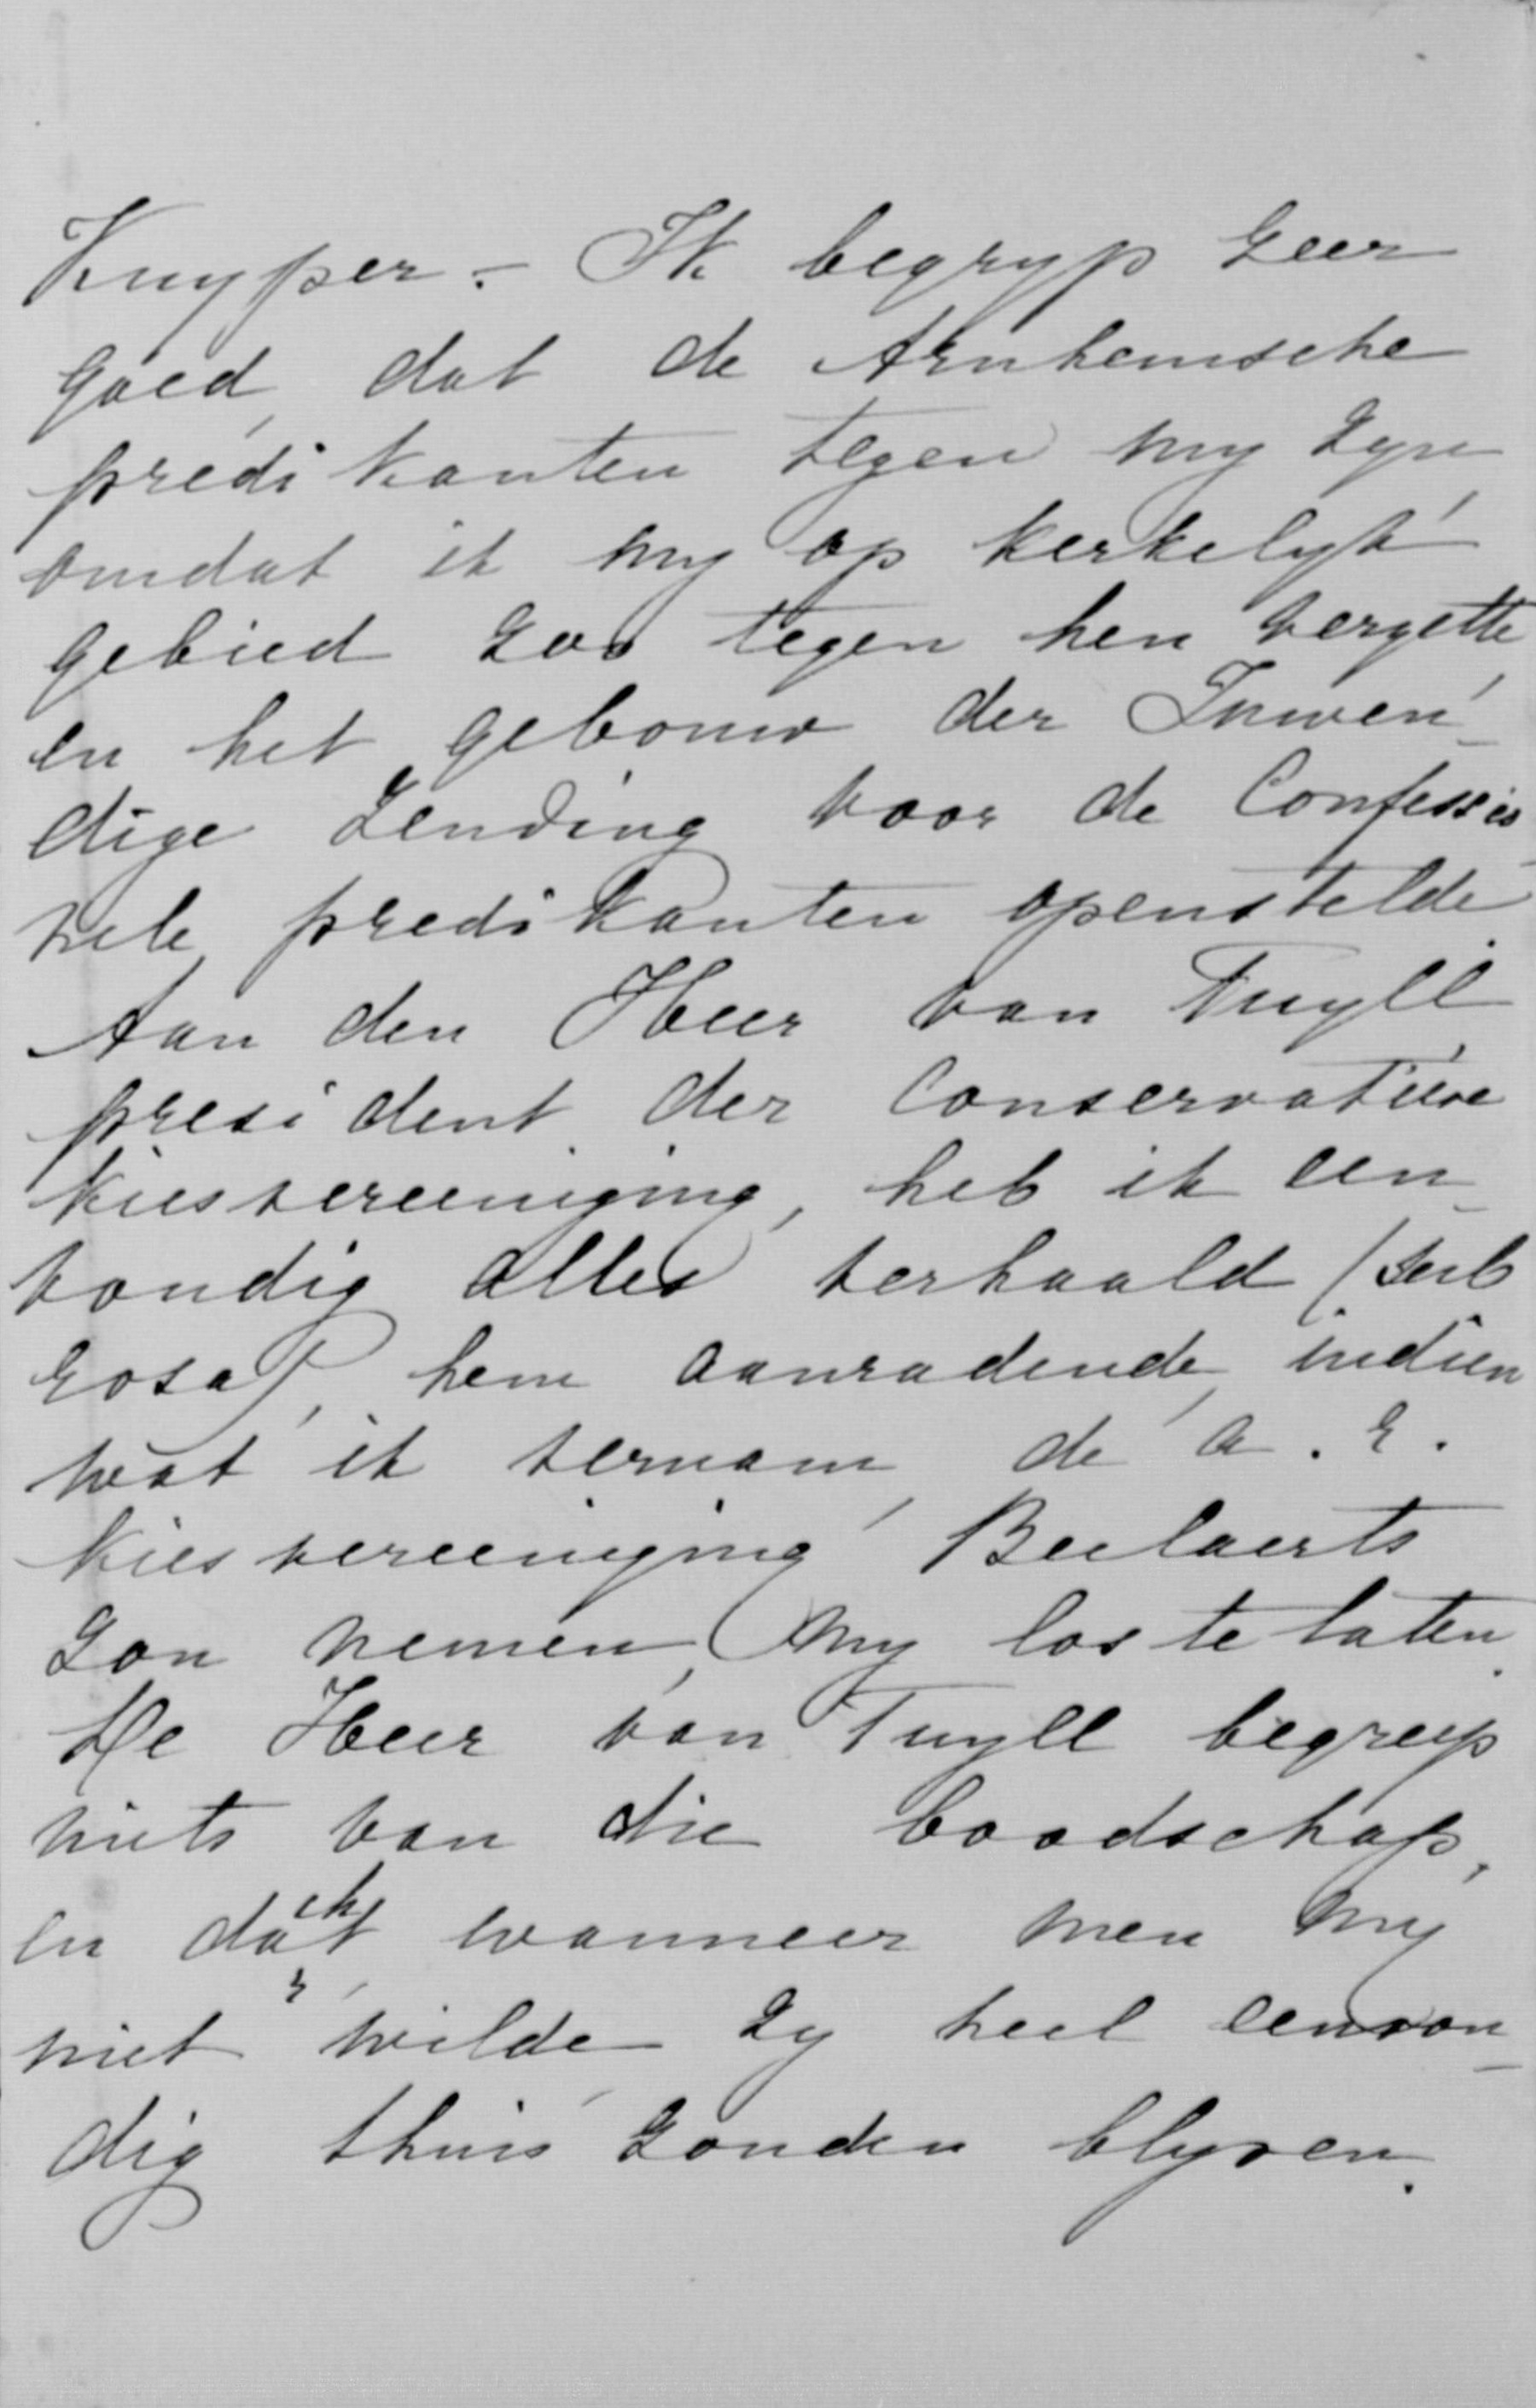 Kuyper. – Ik begryp zeer
goed, dat de Arnhemsche
predikanten tegen my zyn,
omdat ik my op kerkelyk
gebied zoo tegen hen verzette,
en het gebouw der Inwen-
dige Zending voor de Confessio-
nele predikanten openstelde.
Aan den Heer van Tuyll,
president der Conservatieve
Kiesvereeniging, heb ik een-
voudig alles verhaald (sub
rosa), hem aanradende, indien
wat ik vernam, de a. r.
Kiesvereeniging Beelaerts
zou nemen, my los te laten.
De Heer van Tuyll begreep
niets van die boodschap,
en dacht, wanneer men my
niet wilde, zy heel eenvou-
dig thuis zouden blyven.